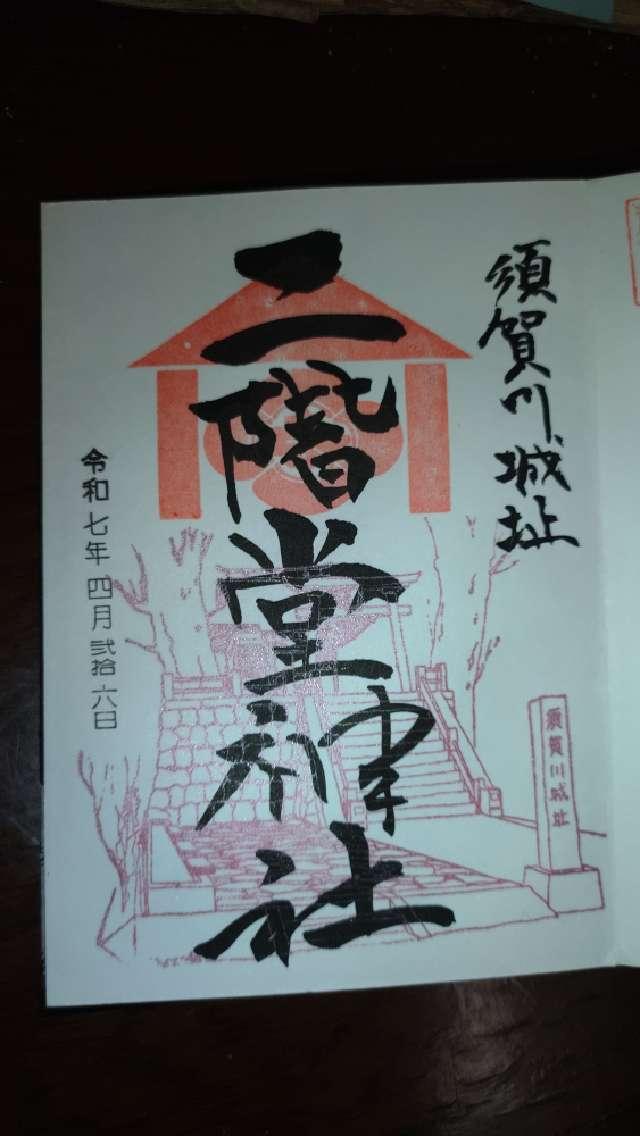 須賀川城址
二階堂神社
令和七年四月弐拾六日
須賀川城址